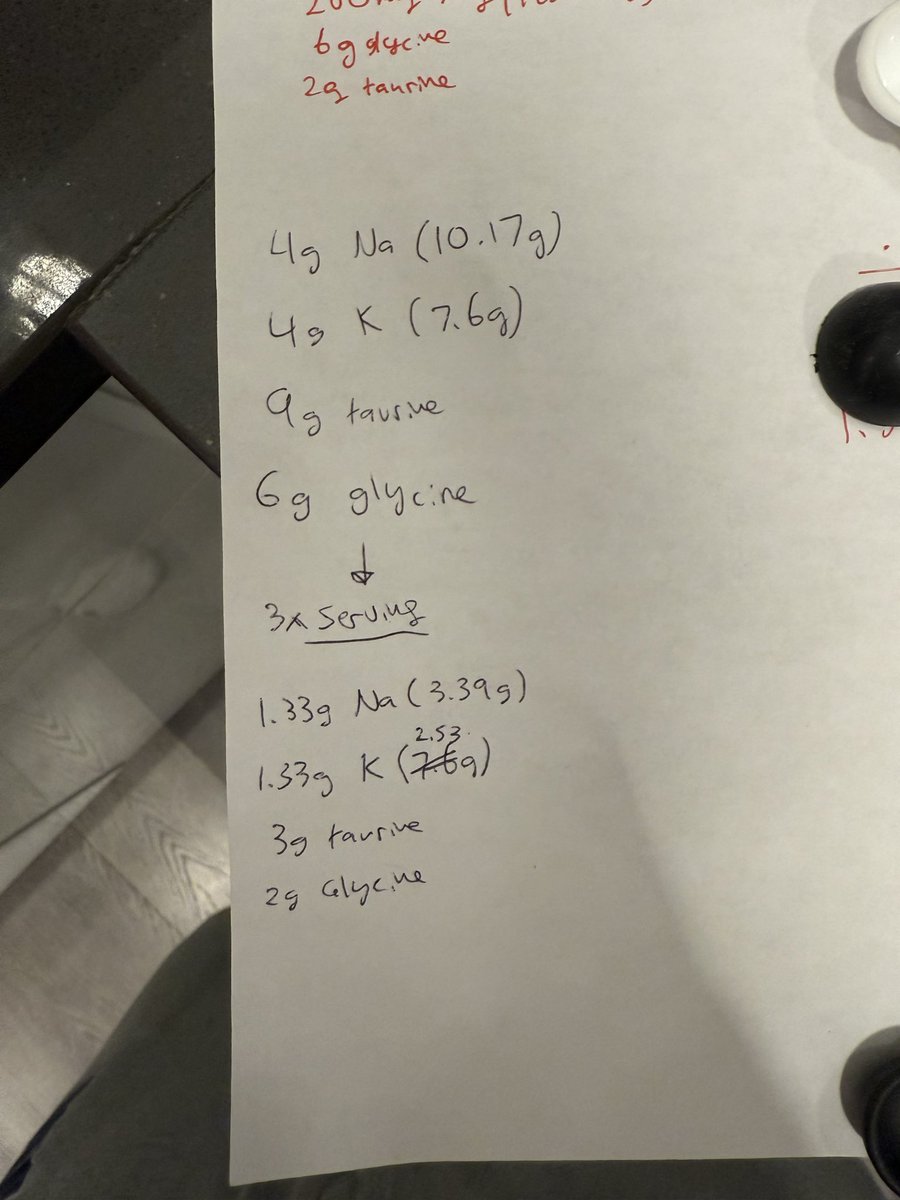 6g glycine
2g taurine
4g Na (10.17g)
4g K (7.6g)
9g taurine
6g glycine
↓
3x serving
1.33g Na (3.39g)
2.53
1.33g K (7.6g)
3g taurine
2g Glycine